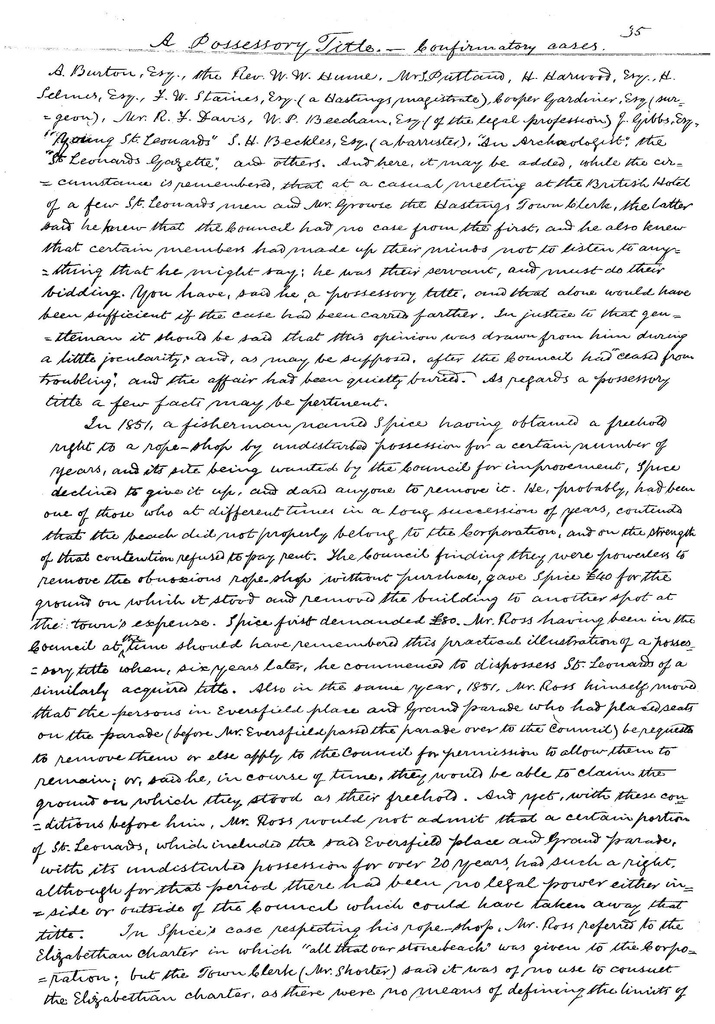 35
A Possessory Title. — Confirmatory cases.
A. Burton, Esq., the Rev. W. W. Hume, Mr. Putland, H. Harwood, Esq., H.
Selmes, Esq., F. W. Staines, Esq. (a Hastings magistrate), Cooper Gardiner, Esq (sur=
=geon), Mr. R. F. Davis, W. P. Beedham, Esq. (of the legal profession) J. Gibbs, Esq.
"Young St. Leonards" S. H. Beckles, Esq. (a barrister), "An Archæologist", the
"St Leonards Gazette", and others. And here, it may be added, while the cir=
=cumstance is remembered, that at a casual meeting at the British Hotel
of a few St. Leonards men and Mr. Growse the Hastings Town Clerk, the latter
said he knew that the Council had no case from the first, and he also knew
that certain members had made up their minds not to listen to any=
=thing that he might say; he was their servant, and must do their
bidding. You have, said he, a possessory title, and that alone would have
been sufficient if the case had been carried farther. In justice to that gen=
=tleman it should be said that this opinion was drawn from him during
a little jocularity; and, as may be supposed, after the Council had "ceased from
troubling", and the affair had been quietly buried. As regards a possessory
title a few facts may be pertinent.
In 1851, a fisherman named Spice having obtained a freehold
right to a rope-shop by undisturbed possession for a certain number of
years, and its site being wanted by the Council for improvement, Spice
declined to give it up, and dared anyone to remove it. He, probably, had been
one of those who at different times in a long succession of years, contended
that the beach did not properly belong to the Corporation, and on the strength
of that contention refused to pay rent. The Council finding they were powerless to
remove the obnoxious rope-shop without purchase, gave Spice £40 for the
ground on which it stood and removed the building to another spot at
the town's expense. Spice first demanded £80. Mr. Ross having been in the
Council at the time should have remembered this practical illustration of a posses=
=sory title when, six years later, he commenced to dispossess St. Leonards of a
similarly acquired title. Also in the same year, 1851, Mr. Ross himself moved
that the persons in Eversfield place and Grand parade who had placed seats
on the parade (before Mr. Eversfield passed the parade over to the Council) be requested
to remove them or else apply to the Council for permission to allow them to
remain; or, said he, in course of time, they would be able to claim the
ground on which they stood as their freehold. And yet, with these con=
=ditions before him, Mr. Ross would not admit that a certain portion
of St. Leonards, which included the said Eversfield place and Grand parade,
with its undisturbed possession for over 20 years, had such a right,
although for that period there had been no legal power either in=
=side or outside of the Council which could have taken away that
title. In Spice's case respecting his rope-shop, Mr. Ross referred to the
Elizabethan charter in which "all that our stonebeach" was given to the Corpo=
=ration; but the Town Clerk (Mr. Shorter) said it was of no use to consult
the Elizabethan charter, as there were no means of defining the limits of